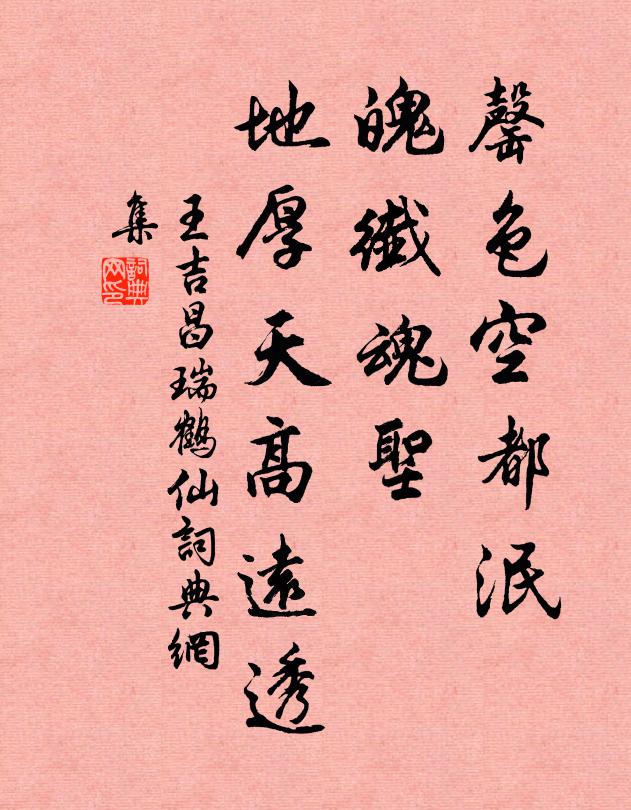 罄色空都泯
魄纖魂聖
地厚天高遠透
王吉昌瑞鶴仙詞典網
集
詞典
网印